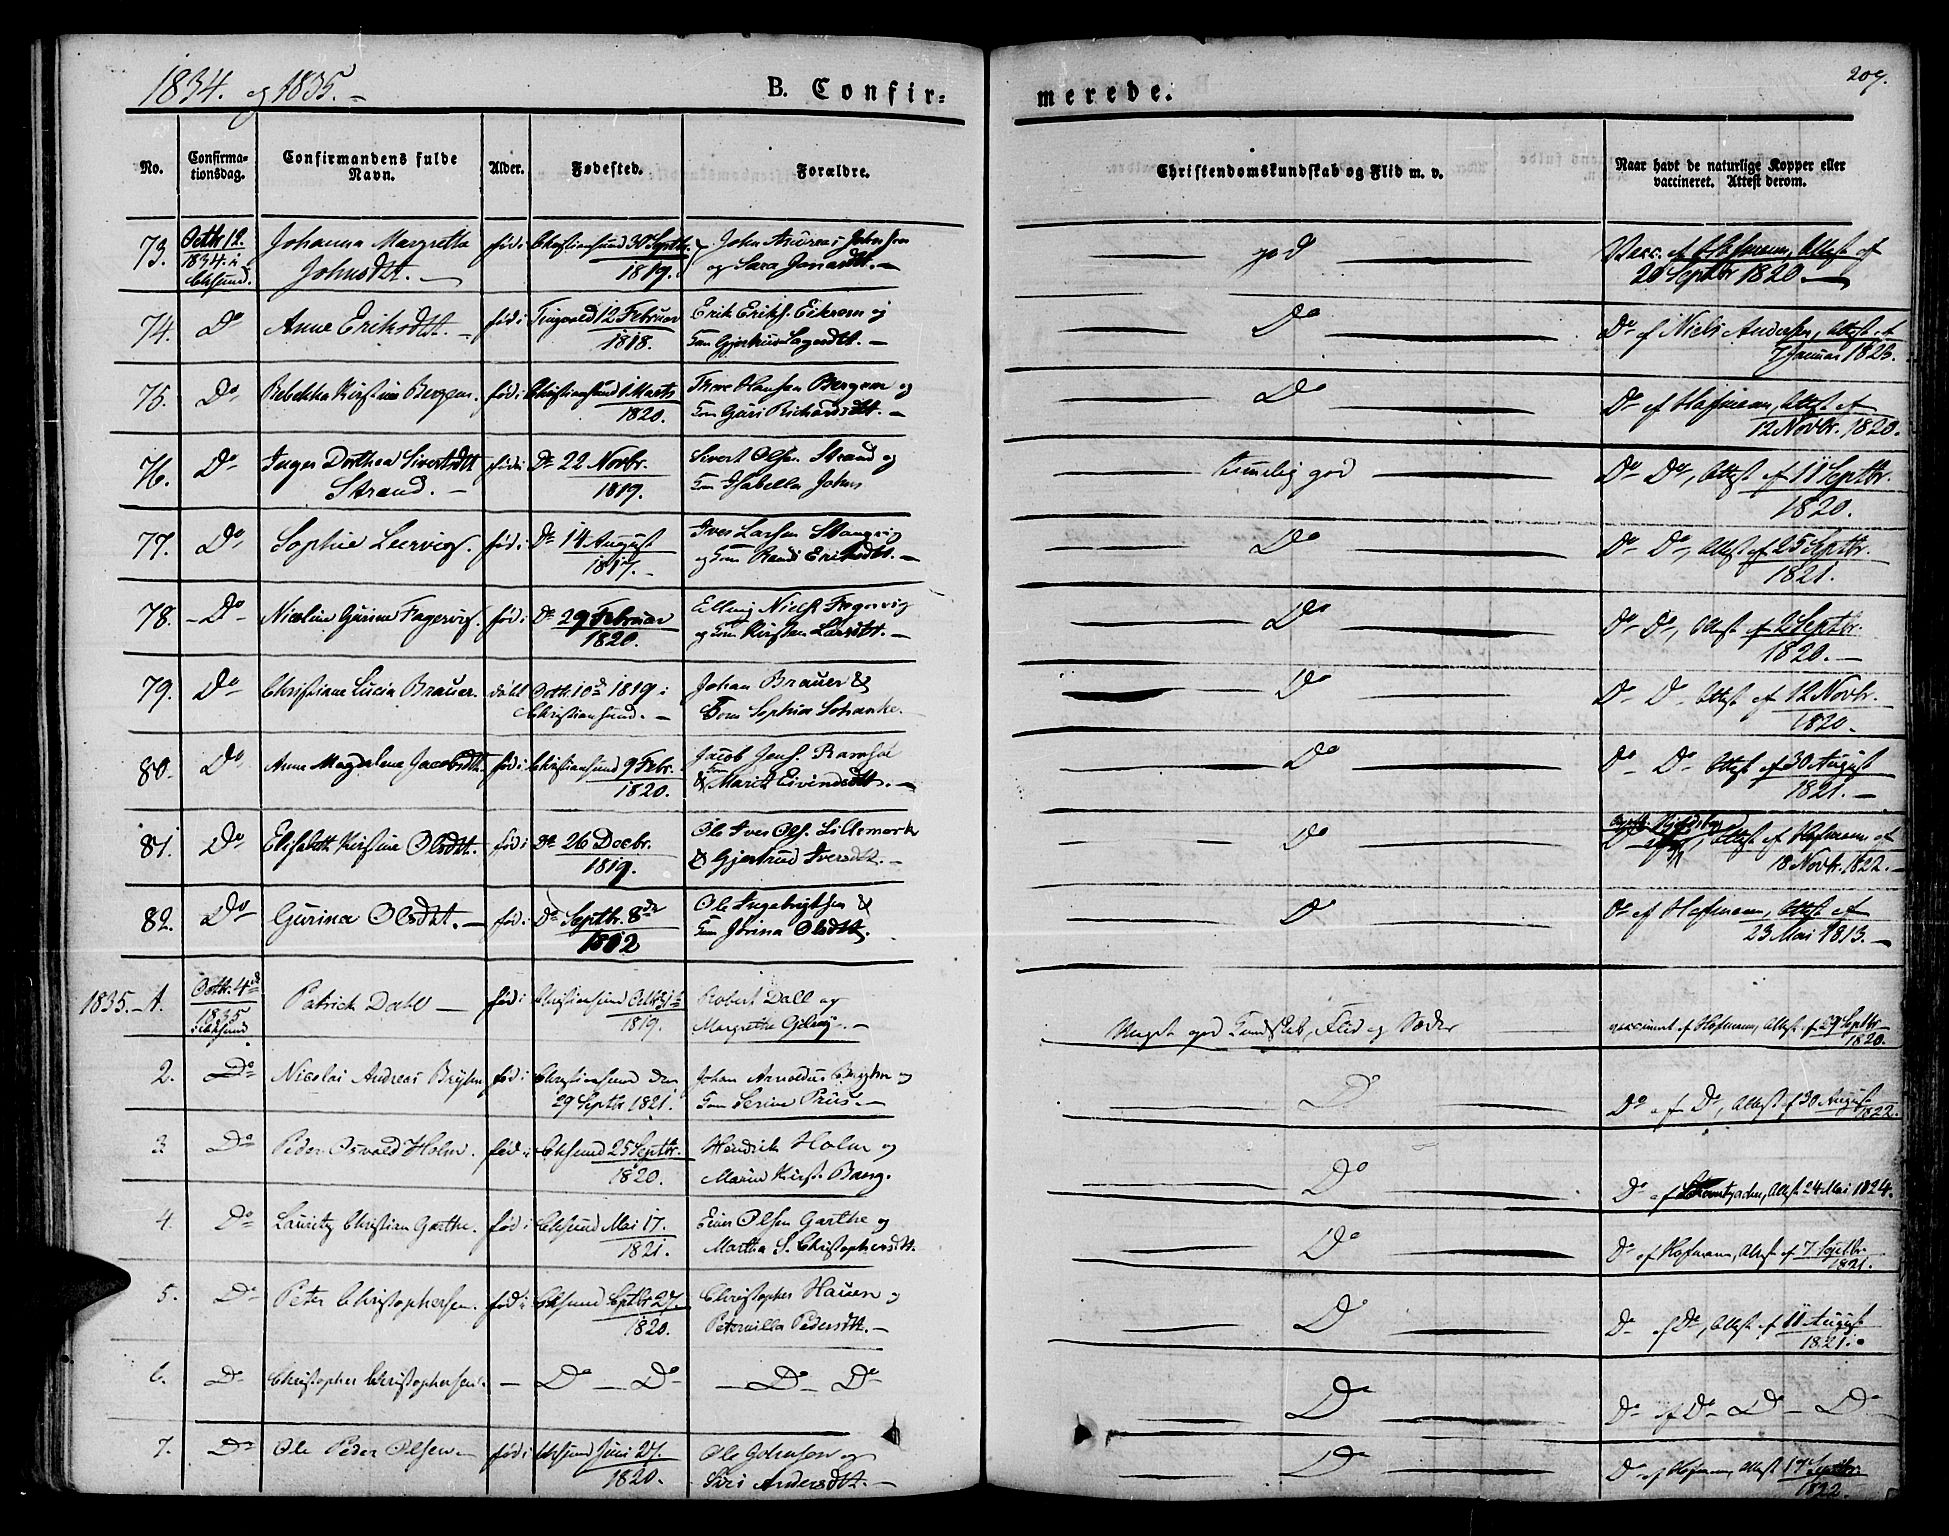 1834. og 1835.
B. Confirmerede.
209.
No.
Confirmationsdag.
Confirmandens fulde Navn.
Alder.
Fødested.
Forældre.
Christendomskundskab og Flid m. v.
Naar havt de naturlige Kopper eller vaccineret. Attest derom.
73. Octbr 12. 1834 i Chrsund. Johanna Margretha Johnsdtt. fød i Christiansund 30 Septbr. 1819. John Andreas Johnsen og Sara Jonasdtt. god Vacc. af Hofmann, Attest af 20 Septbr 1820.
74. Do Anne Eriksdtt. fød i Tingvold 12 Februar 1818. Erik Eriks. Eikrem og Do af Niels Andersen, Attest af 7 Januar 1823.
75. Do Rebekka Kirstine Bergem. fød i Christiansund 1 Marts 1820. Hansen Bergem og Guri Richardsdtt. Do Do af Hofmann, Attest af 12 Novbr. 1820.
76. Do Inger Dorthea Sivertsdtt Strand. født Do 22 Novbr. 1819. Sivert Olsen Strand og Isabella Johns temmelig god Do Do, Attest af 11 Septbr. 1820.
77. Do Sophie Leervig. fød i Do 14 August 1817. Iver Larsen Stangvig og Randi Eriksdtt. Do Do Do, Attest af 25 Septbr. 1821.
78. Do Nicoline Gurine Fagervig. fød i Do 29 Februar 1820. Elling Niels. Fagervig og Kirsten Larsdtt. Do Do Do, Attest af 2 Septbr. 1820.
79. Do Christiane Lucia Brauer. døbt Octbr. 10de 1819 i Christiansund. Johan Brauer & Sophia Do Do Do Attest af 12 Novbr. 1820.
80. Do Anne Magdalena Jacobsdtt. fød i Christiansund 9 Febr. 1820. Jacob Jens. Ramsøe & Marit Eivindsdtt. Do Do Do Attest af 30 August 1821.
81. Do Elisabeth Kirstine Olsdtt. fød i Do 26 Decbr. 1819. Ole Iver Ols. Lillemork & Gjertrud Iversdtt. Do Attest af Hofmann af 18 Novbr. 1822.
82. Do Gurina Olsdtt. fød i Do Septbr. 8de 1802 Ole Ingebrigtsen & Jørina Olsdtt. Do Do af Hofmann, Attest af 23 Mai 1813.
1835. 1. Octbr. 4de 1835 i Chrsund Patrick Dall fød i Christiansund Octbr 31te 1819. Robert Dall og Margrethe Meget god Kundskab, Flid og Sæder vaccineret af Hofmann, Attest af 29 Septbr 1820.
2. Do Nicolai Andreas Bryhn fød i Christiansund den 29 Septbr 1821. Johan Arnoldus Bryhn og Serine Do Do af Do, Attest af 30 August 1822.
3. Do Peder Oswald Holm. fød i Chrsund 25 Septbr. 1820. Hendrik Holm og Maren Kirst. Do Do af Attest 24 Mai 1824.
4. Do Lauritz Christian Garthe. fød i Chrsund Mai 17. 1821. Einer Olsen Garthe og Martha S. Christophersdtt. Do Do af Hofmann, Attest af 7 Septbr. 1821.
5. Do Peter Christophersen. fød i Chrsund Sptbr 27. 1820. Christopher Hansen og Petronilla Pedersdtt. Do Do af Do, Attest af 11 August 1821.
6. Do Christopher Christophersen. Do Do Do Do Do Do af Do Do Do
7. Do Ole Peder Olsen fød i Chrsund Juni 27. 1820. Ole Johnsen og Siri Andersdtt. Do Do af Hofmann, Attest 17 Septbr. 1822.